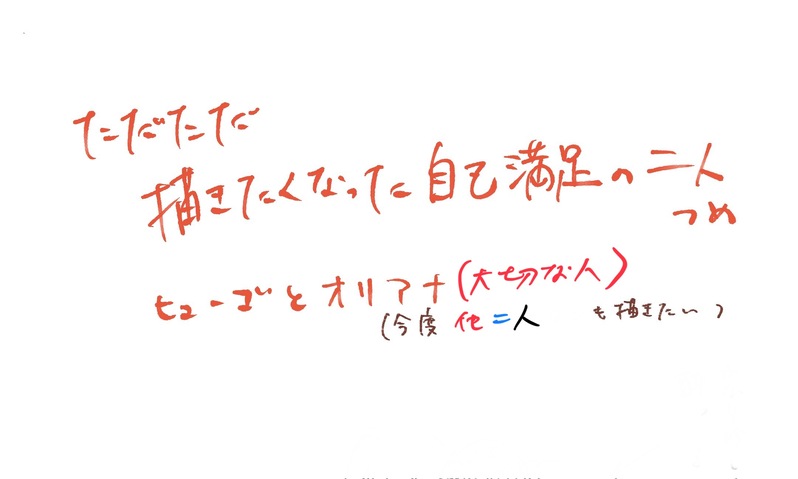 ただただ
描きたくなった自己満足の二人
つめ
ヒューゴとオリアナ(大切な人)
(今度 他二人 も描きたい)